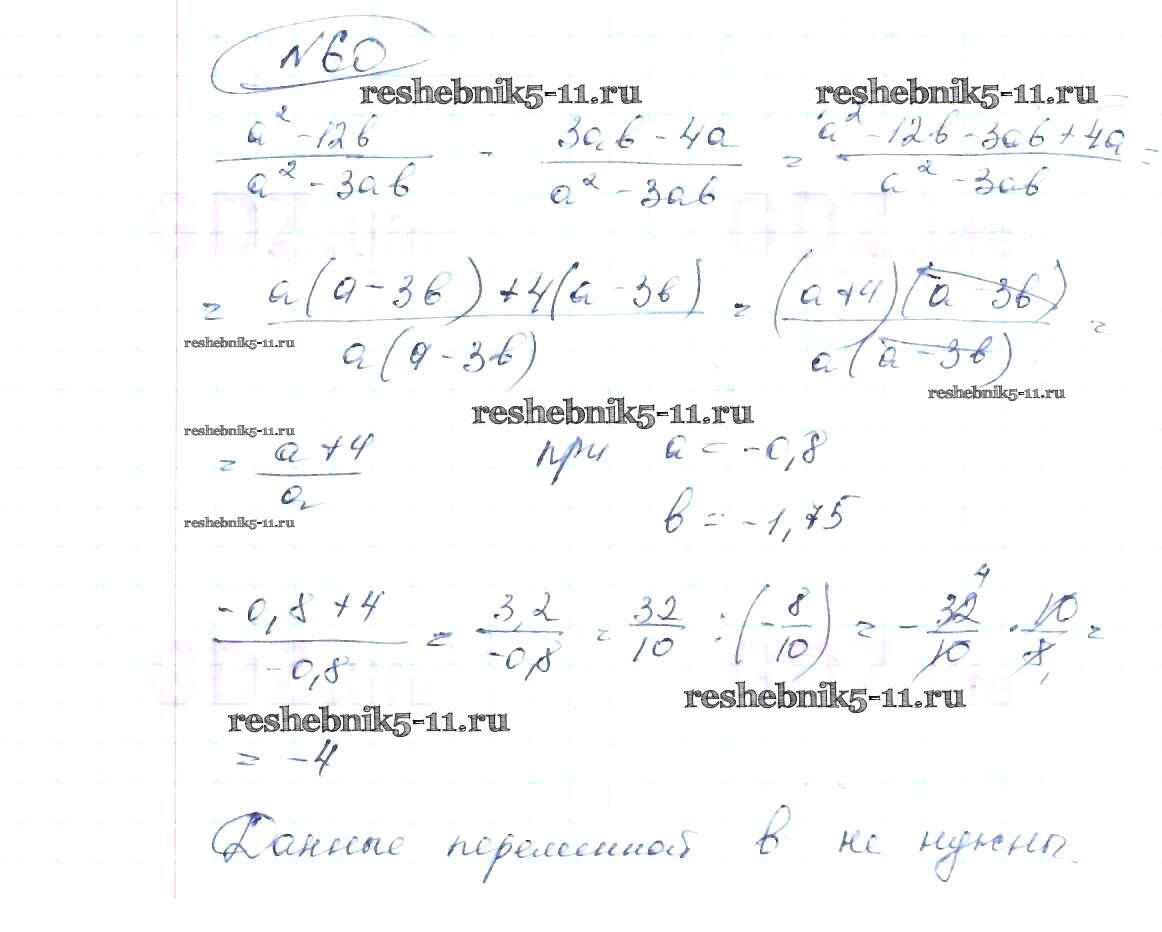 №60
reshebnik5-11.ru reshebnik5-11.ru
(a² - 12b)/(a² - 3ab) - (3ab - 4a)/(a² - 3ab) = (a² - 12b - 3ab + 4a)/(a² - 3ab) =
= (a(a - 3b) + 4(a - 3b))/(a(a - 3b)) = ((a + 4)(a - 3b))/(a(a - 3b)) =
reshebnik5-11.ru
reshebnik5-11.ru
reshebnik5-11.ru
reshebnik5-11.ru
= (a + 4)/a при a = -0,8
b = -1,75
reshebnik5-11.ru
(-0,8 + 4)/(-0,8) = 3,2/(-0,8) = 32/10 : (-8/10) = -32/10 · 10/8 =
4 1
reshebnik5-11.ru
reshebnik5-11.ru
= -4
Данные переменной в не нужны.